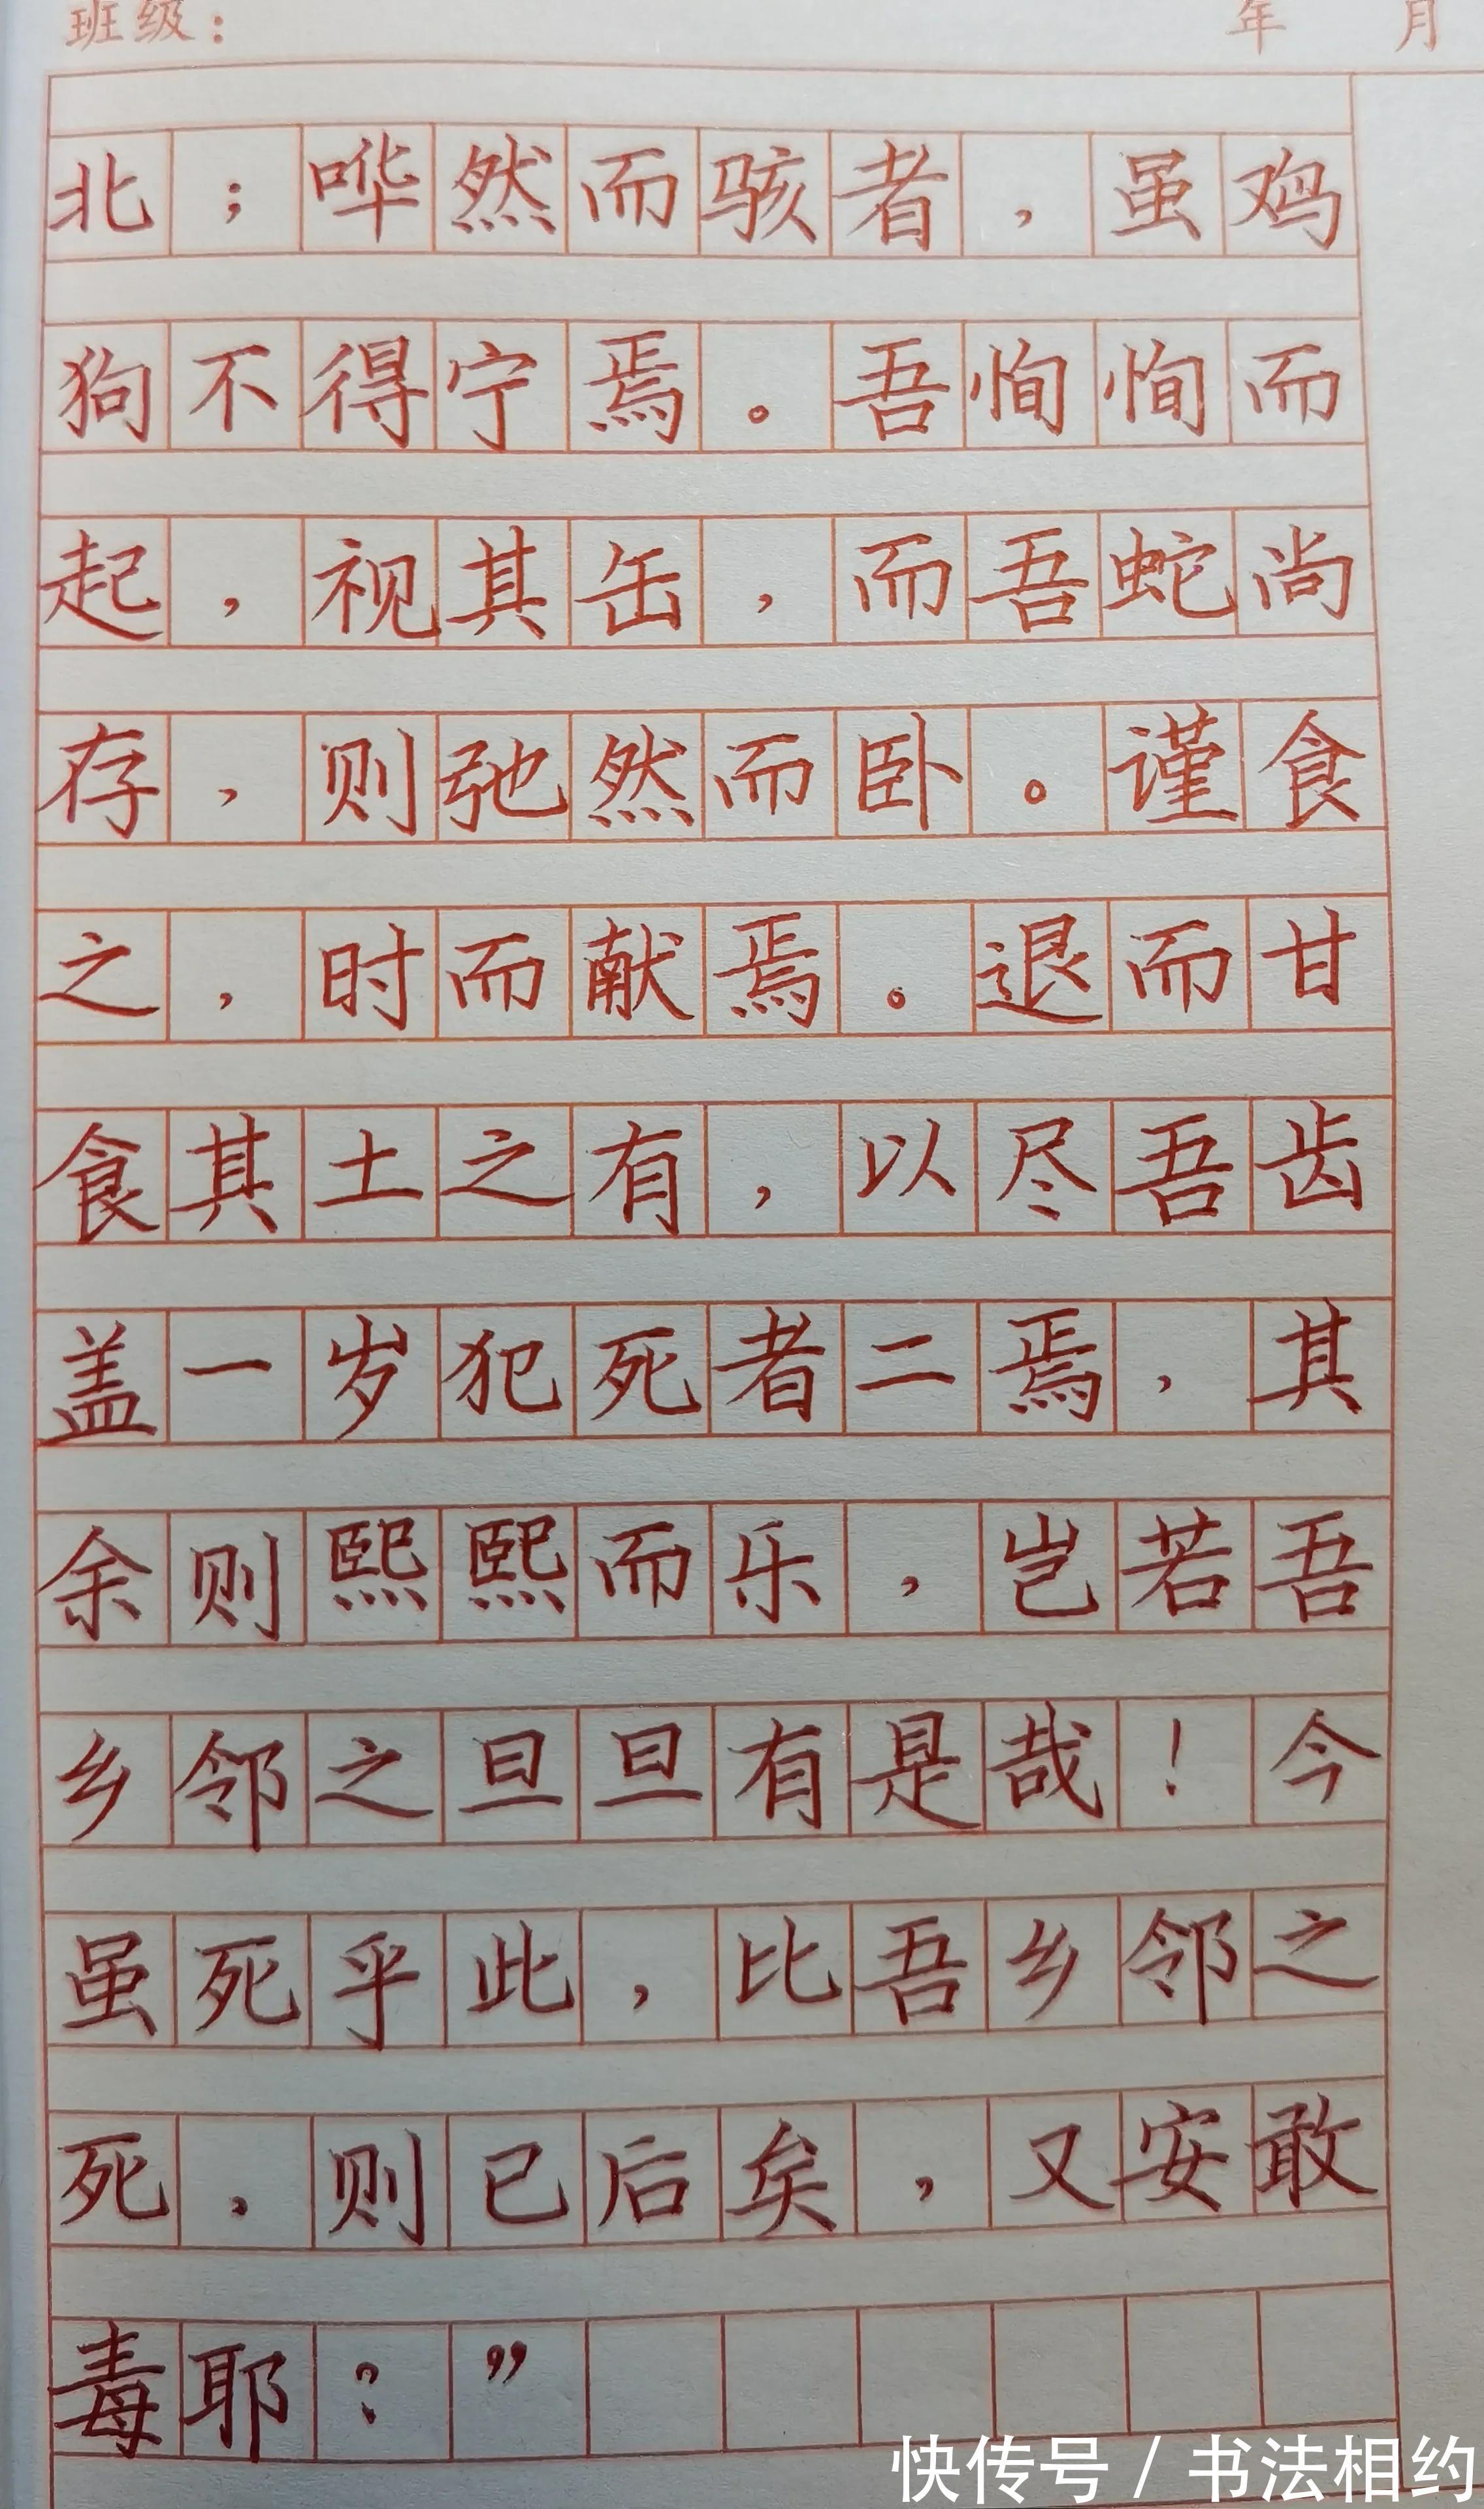 班级： 年 月
北；哗然而骇者，虽鸡
狗不得宁焉。吾恂恂而
起，视其缶，而吾蛇尚
存，则弛然而卧。谨食
之，时而献焉。退而甘
食其土之有，以尽吾齿
盖一岁犯死者二焉，其
余则熙熙而乐，岂若吾
乡邻之旦旦有是哉！今
虽死乎此，比吾乡邻之
死，则已后矣，又安敢
毒耶？”
快传号 / 书法相约